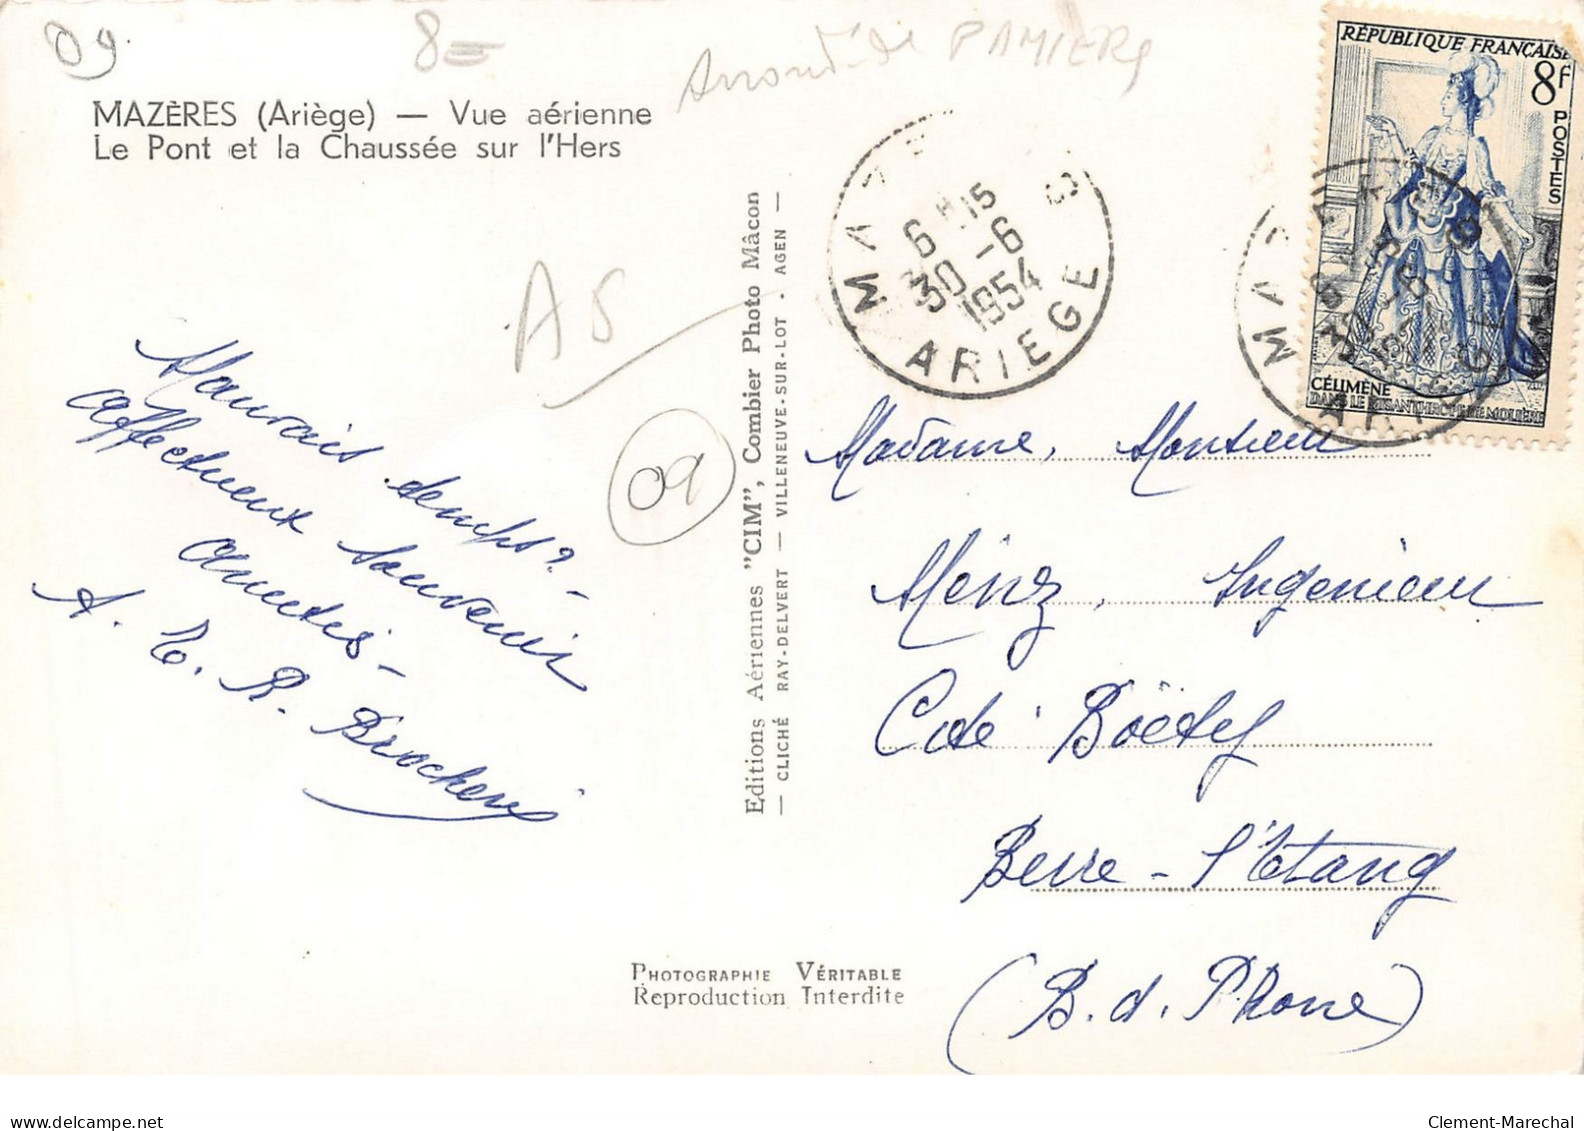 09
8=
Arrondt de PAMIERS
MAZÈRES (Ariège) — Vue aérienne
Le Pont et la Chaussée sur l'Hers
RÉPUBLIQUE FRANÇAISE
8F
POSTES
CÉLIMÈNE
DANS LE MISANTHROPE DE MOLIÈRE
6 H 15
30 -6
1954
ARIEGE
AS
09
Mauvais temps? -
Affectueux souvenir
amitiés -
A. R. Brochery
Editions Aériennes "CIM", Combier Photo Mâcon
— CLICHÉ RAY-DELVERT — VILLENEUVE-SUR-LOT · AGEN —
Madame, Monsieur
Ménz, Ingenieur
Cité Boëtey
Berre-l'Etang
(B. d. Rhone)
PHOTOGRAPHIE VÉRITABLE
Reproduction Interdite
Clement-Marechal